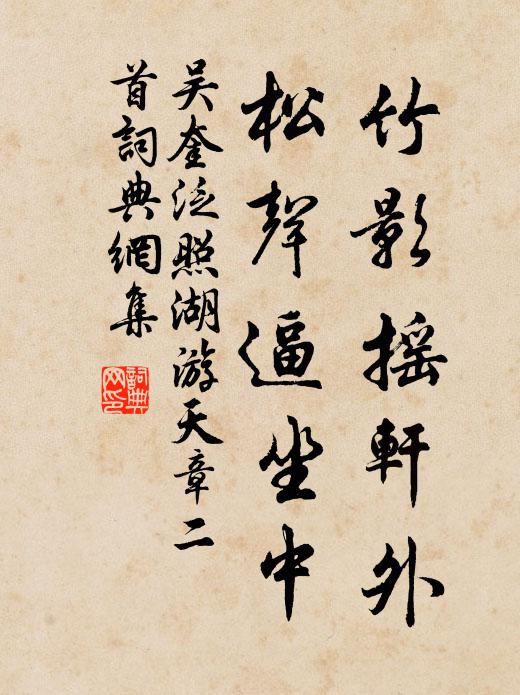 竹影摇軒外
松聲逼坐中
吴奎泛照湖游天章二
首詞典網集
詞典
网印